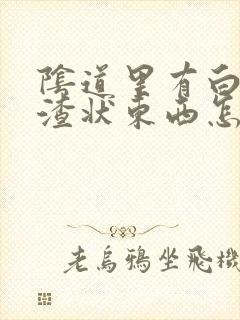 陰道里有白
渣狀東西怎
老烏鴉坐飛機